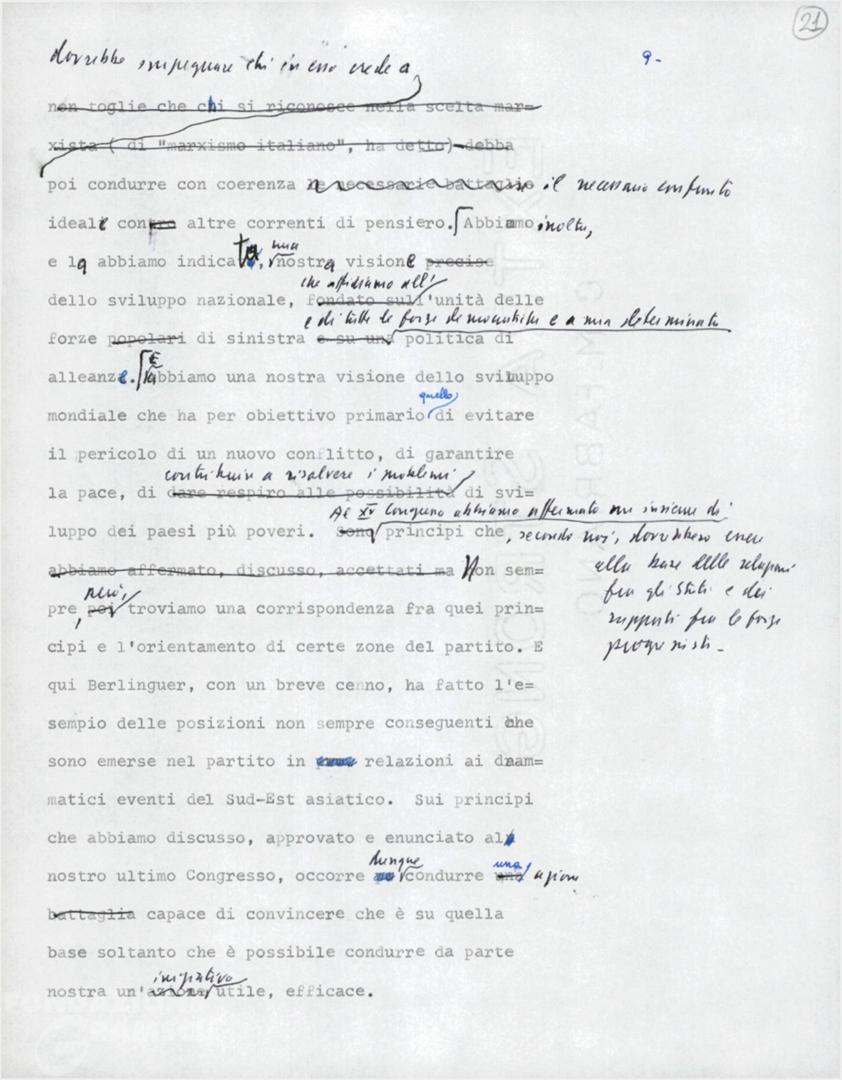 21
9-
dovrebbe impegnare chi in essi crede a
non toglie che chi si riconosce nella scelta mar=
xista ( di "marxismo italiano", ha detto) debba
poi condurre con coerenza le necessarie battaglie il necessario confronto
ideale contro altre correnti di pensiero. Abbiamo inoltre,
e la abbiamo indicata, una nostra visione precise
che affidiamo all'
dello sviluppo nazionale, fondato sull'unità delle
e di tutte le forze democratiche e a una determinata
forze popolari di sinistra e su una politica di
alleanze. E abbiamo una nostra visione dello sviluppo
quello
mondiale che ha per obiettivo primario di evitare
il pericolo di un nuovo conflitto, di garantire
contribuire a risolvere i problemi
la pace, di dare respiro alle possibilità di svi=
Al XV Congresso abbiamo affermato un insieme di
luppo dei paesi più poveri. Sono principi che, secondo noi, dovrebbero essere
alla base delle relazioni
abbiamo affermato, discusso, accettati ma Non sem=
fra gli Stati e dei
però,
pre, poi troviamo una corrispondenza fra quei prin=
rapporti fra le forze
cipi e l'orientamento di certe zone del partito. E
progressiste.
qui Berlinguer, con un breve cenno, ha fatto l'e=
sempio delle posizioni non sempre conseguenti che
sono emerse nel partito in relazioni ai dram=
matici eventi del Sud-Est asiatico. Sui principi
che abbiamo discusso, approvato e enunciato al
nostro ultimo Congresso, occorre dunque condurre una azione
battaglia capace di convincere che è su quella
base soltanto che è possibile condurre da parte
iniziativa
nostra un'azione utile, efficace.